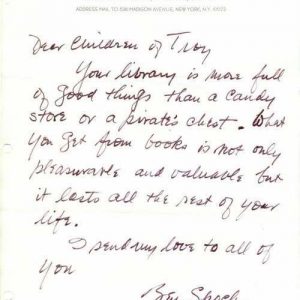 ADDRESS MAIL TO: 538 MADISON AVENUE, NEW YORK, N.Y. 10022
Dear Children of Troy
Your library is more full
of good things than a candy
store or a pirate's chest. What
you get from books is not only
pleasurable and valuable but
it lasts all the rest of your
life.
I send my love to all of
you
Ben Spock